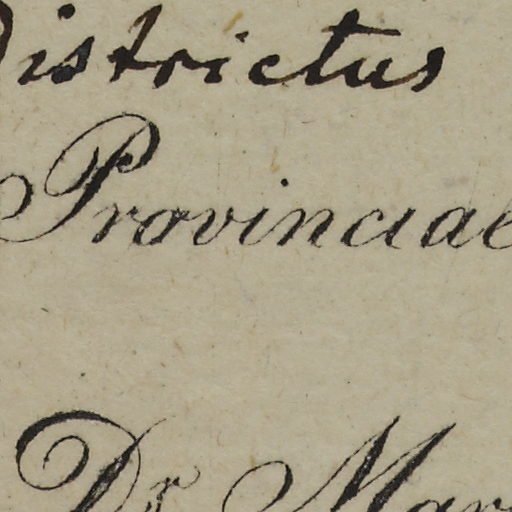 Districtus
Provinciae
Dr Mar